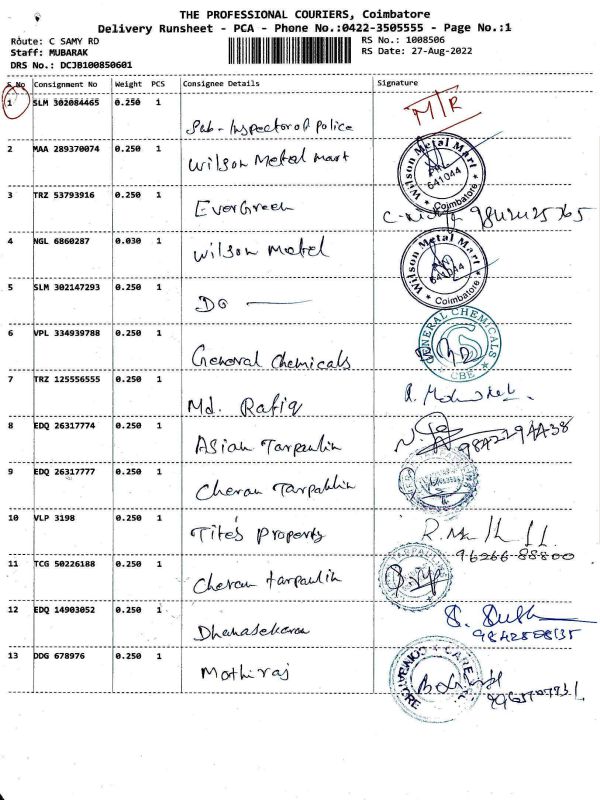 THE PROFESSIONAL COURIERS, Coimbatore
Delivery Runsheet - PCA - Phone No.:0422-3505555 - Page No.:1
Route: C SAMY RD
Staff: MUBARAK
DRS No.: DCJB100850601
RS No.: 1008506
RS Date: 27-Aug-2022
S.No Consignment No Weight PCS Consignee Details Signature
1 SLM 302084465 0.250 1 M/R
Sub-Inspector of Police
2 MAA 289370074 0.250 1
Wilson Metal Mart
Wilson Metal Mart 641044 Coimbatore
3 TRZ 53793916 0.250 1
EverGreen
4 NGL 6860287 0.030 1
Wilson Metal
Wilson Metal Mart 641044 Coimbatore
5 SLM 302147293 0.250 1
DO
6 VPL 334939788 0.250 1
General Chemicals
GENERAL CHEMICALS CBE
7 TRZ 125556555 0.250 1
Md. Rafiq
8 EDQ 26317774 0.250 1
Asian Tarpaulin
9 EDQ 26317777 0.250 1
Cheran Tarpaulin
10 VLP 3198 0.250 1
Tite's Property
96266 88800
11 TCG 50226188 0.250 1
Cheran tarpaulin
12 EDQ 14903052 0.250 1
Dhanasekaran
13 DDG 678976 0.250 1
Mothiraj